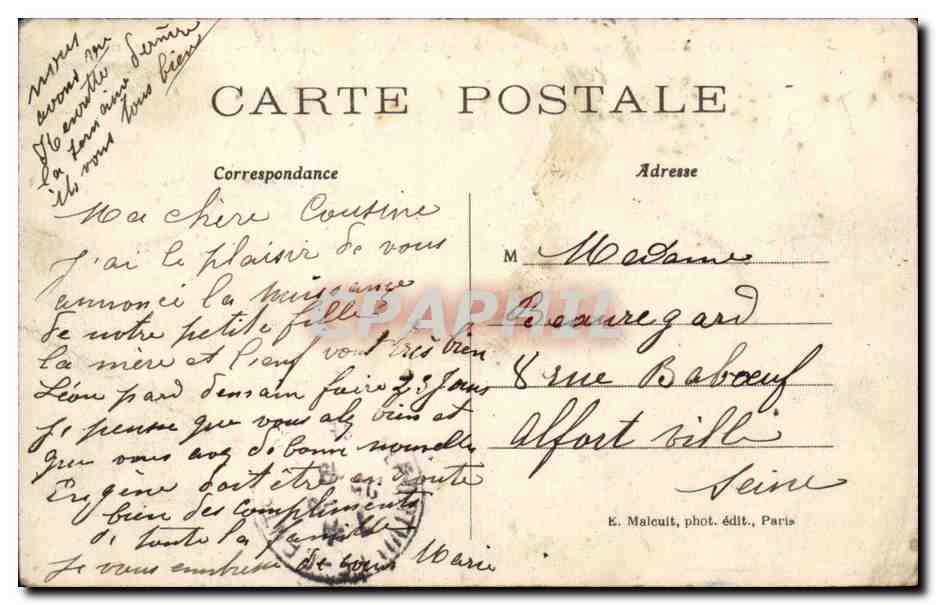 nous
avons vu
Henriette
la semaine dernière
ils vous tous bien
CARTE POSTALE
Correspondance
Adresse
Ma chère Cousine
J'ai le plaisir de vous
annoncé la naissance
de notre petite fille
la mère et l'enf vont très bien
Léon pard demain faire 23 Jours
Je pense que vous alez bien et
que vous avez de bonne nouvelle
Eugène doit être en route
bien des compliments
a toute la famille
Je vous embrasse de tous Marie
M Madame
Beauregard
8 rue Babœuf
Alfort ville
Seine
E. Malcuit, phot. édit., Paris
CPAPHIL